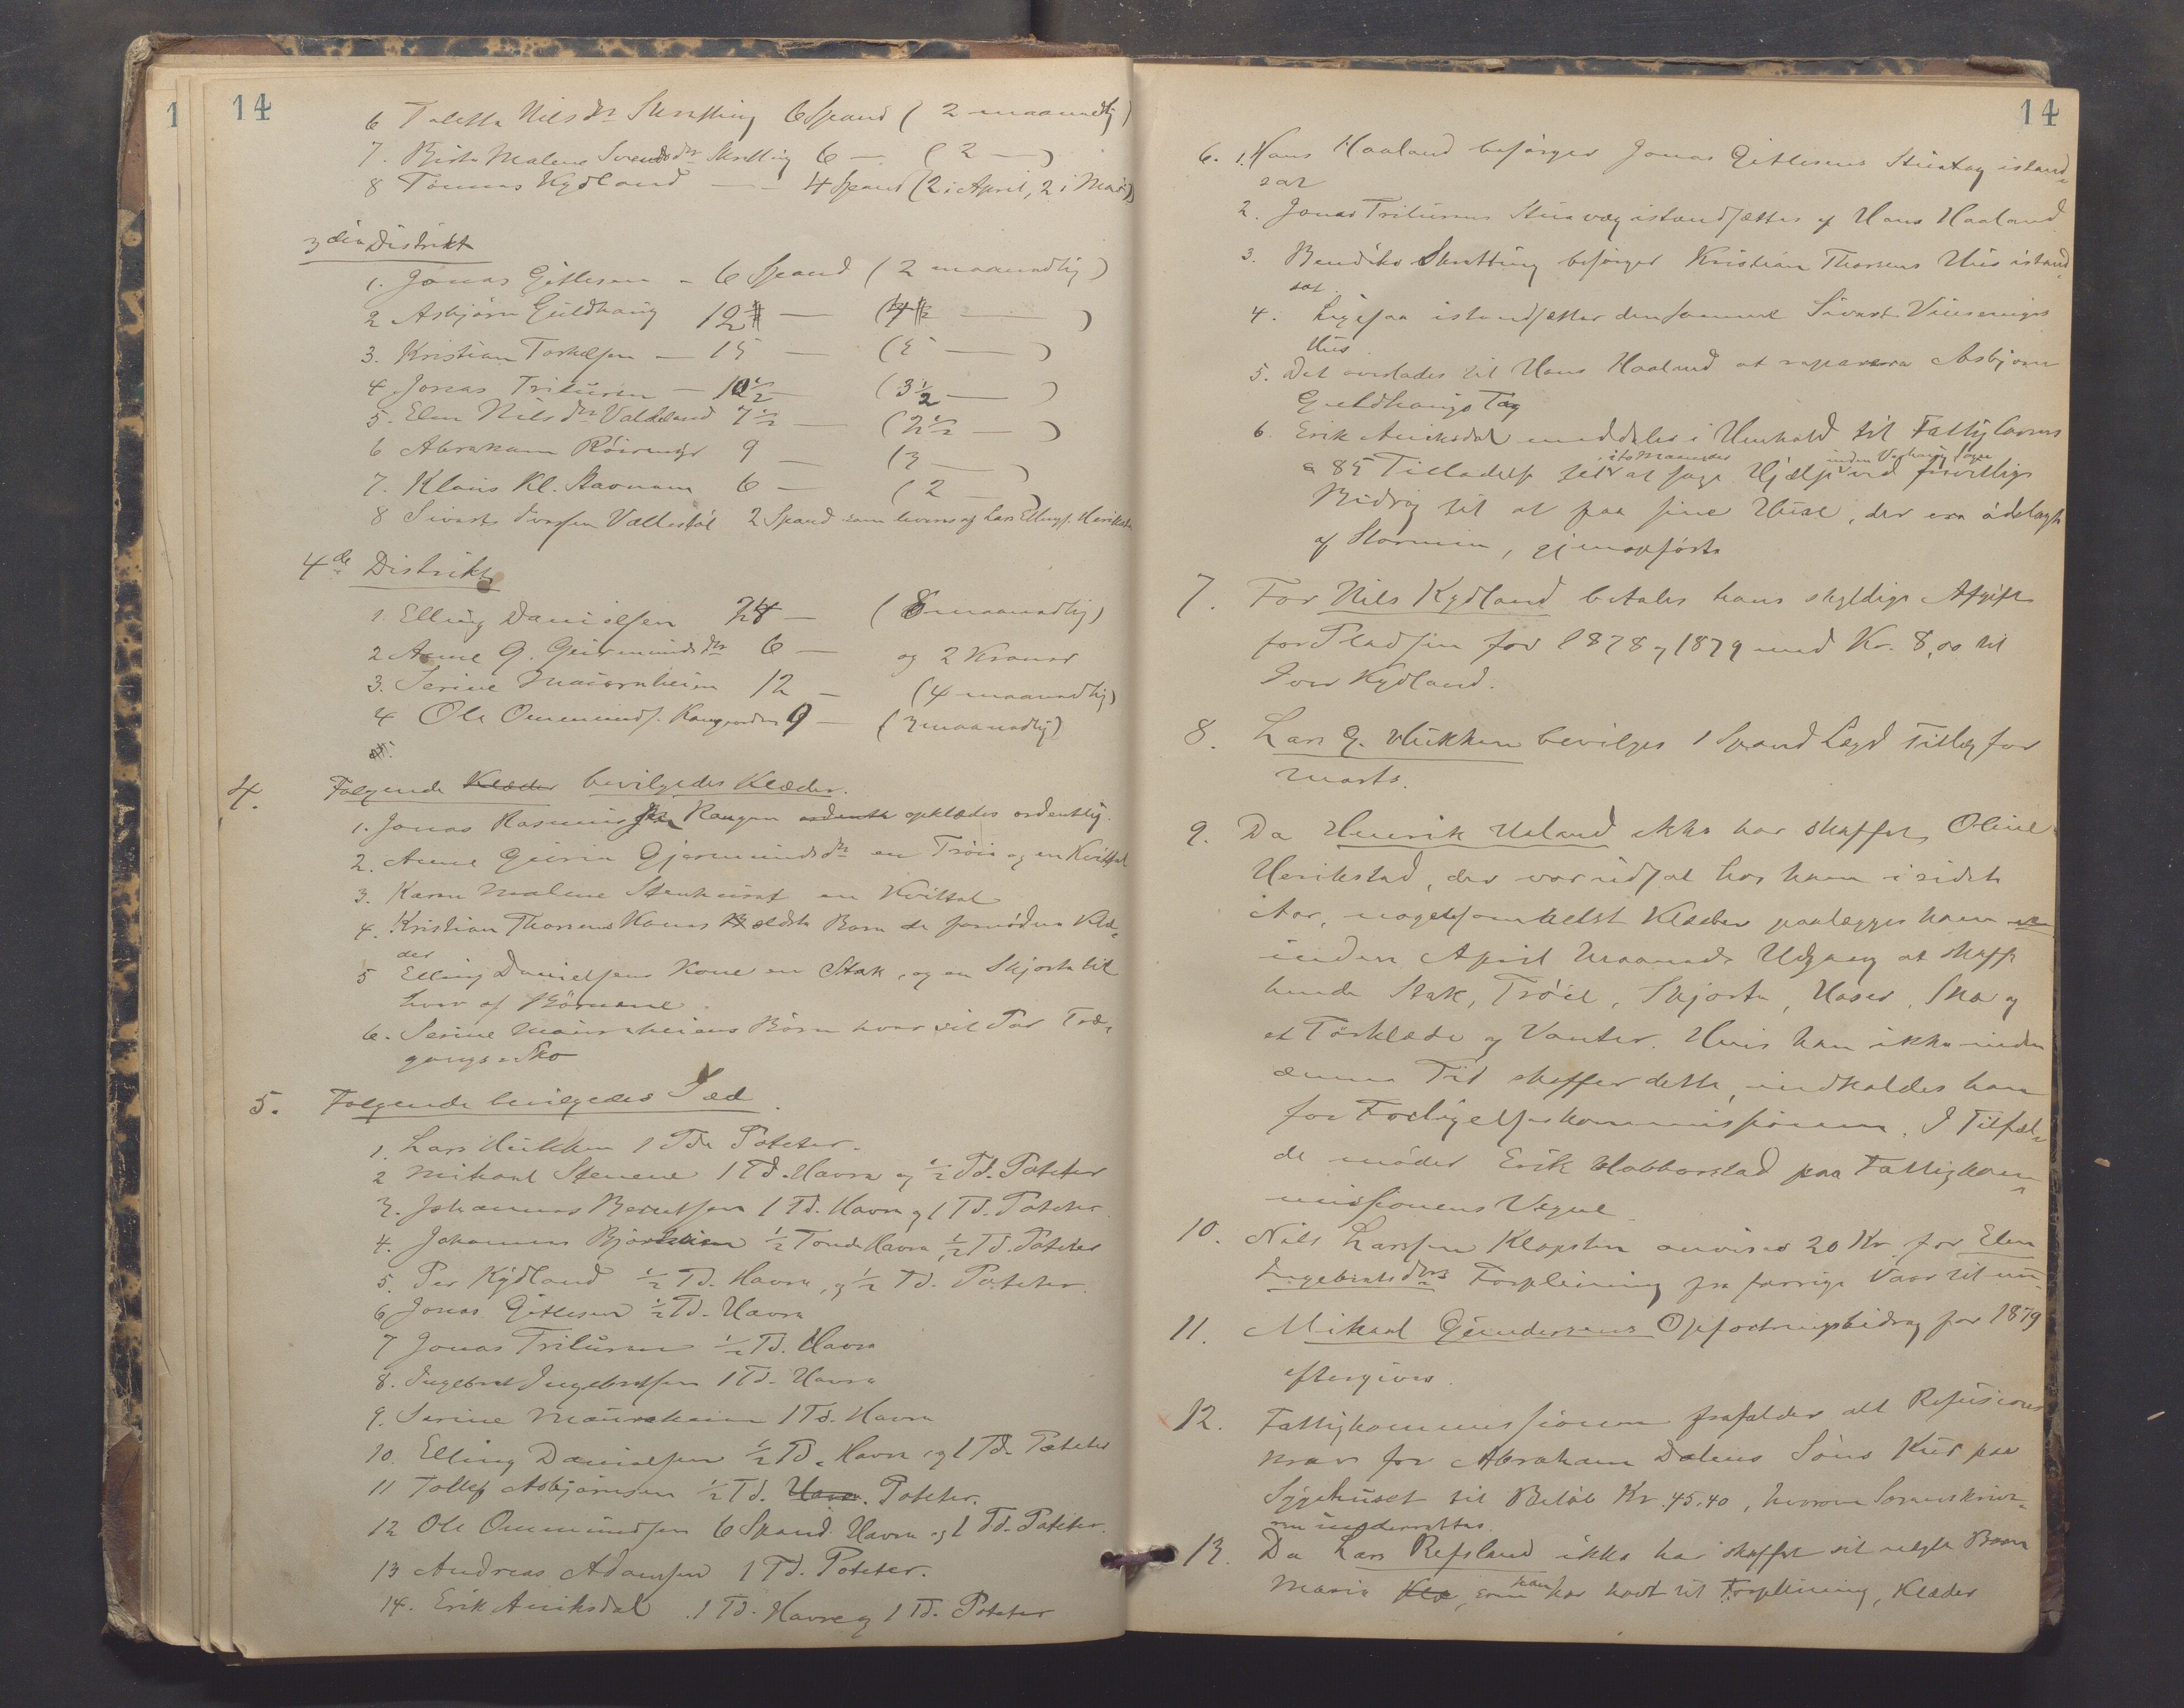 14
6 Taletta Nilsdr Skretting 6 Spand (2 maanedlig)
7. Berta Malene Svendsdr Skretting 6 — (2 —)
8 Tønnes Kydland — 4 Spand (2 i April, 2 i Mai)
3die Distrikt
1. Jonas Gitlesen - 6 Spand (2 maanedlig)
2 Asbjørn Guldhaug 12 — (4 — )
3. Kristian Torkelsen — 15 — (5 — )
4 Jonas Trilursen — 10½ (3½ — )
5. Elen Nilsdr Valdeland 7½ — (2½ — )
6 Abraham 9 — (3 — )
7. Klaus Kl. Stavnam 6 — (2 — )
8 Sivert Iversen 2 Spand som leveres af Lars
4de Distrikt
1. Elling Danielsen 24 — (8 maanedlig)
2 Anne G. Geirmundsdr 6 — og 2 Kroner
3. Serine Maurnheim 12 — (4 maanedlig)
4 Ole Ommunds. 9 — (3 maanedlig)
4. Følgende Klæder bevilgedes Klæder.
1. Jonas Rasmussen Haugen ordentl opklædes ordentlig.
2. Anne Guria Gjermundsdr en Trøie og en Kvittel
3. Karen Malene en Kvittel
4. Kristian Thorsens Kones ældste Barn de fornødne Klæ-
der
5 Elling Danielsens Kone en Stak, og en Skjorte til
hver af Børnene
6. Serine Maurnheims Børn hver sit Par Træ-
gangs-Sko
5. Følgende bevilgedes Sæd.
1. Lars Hukken 1 Tde Poteter.
2 Mikael Stenene 1 Td. Havre og ½ Td. Poteter
3. Johannes Berentsen 1 Td. Havre og 1 Td. Poteter.
4. Johannes Bjørheim ½ Tonde Havre, ½ Td. Poteter
5. Per Kydland ½ Td. Havre, og ½ Td. Poteter.
6 Jonas Gitlesen ½ Td. Havre
7 Jonas Trilursen ½ Td. Havre
8. Ingebret Ingebretsen 1 Td. Havre
9. Serine Maurnheim 1 Td. Havre
10. Elling Danielsen ½ Td. Havre og 1 Td. Poteter
11 Tollef Asbjørnsen ½ Td. Havre. Poteter.
12 Ole Ommundsen 6 Spand Havre og 1 Td. Poteter.
13 Andreas Adamsen 1 Td. Poteter.
14. Erik Auiksdal 1 Td. Havre og 1 Td. Poteter
14
6. 1. Hans Haaland besørger Jonas Gitlesens Stuetag istand-
sat
2. Jonas Trilursens Stuevæg istandsættes af Hans Haaland.
3. Bendiks Skretting besørger Kristian Thorsens Hus istand-
sat.
4. Ligesaa istandsætter densamme Sivert
Hus.
5. Det overlades til Hans Haaland at reparere Asbjørn
Guldhaugs Tag
6. Erik Auiksdal meddeles i Henhold til Fattiglovens
, ito Maaneder inden Varhaug Sogn
§ 85 Tilladelse til at søge Hjælp ved frivillige
Bidrag til at faa sine Huse, der ere ødelagte
af Stormen, gjenopførte
7. For Nils Kydland betales hans skyldige Afgift
for Pladsen for 1878 og 1879 med Kr. 8,00 til
Iver Kydland.
8. Lars G. Hukken bevilges 1 Spand Lægd Tillæg for
Marts.
9. Da Henrik Ueland ikke har skaffet Oline
Henrikstad, der var udsat hos ham i sidste
Aar, nogetsomhelst Klæder paalægges ham
inden April Maaneds Udgang at skaffe
hende Stak, Trøie, Skjorte, Hoser, Sko og
et Tørklæde og Vanter. Hvis han ikke inden
denne Tid skaffer dette, indkaldes han
for Forligelseskommissionen. I Tilfæl-
de møder Erik Hobberstad paa Fattigkom-
missionens Vegne
10. Nils Larssen Klopsten anvises 20 Kr. for Elen
Ingebretsdrs Forpleining fra forrige Vaar til nu.
11. Mikael Gundersens Opfostringsbidrag for 1879
eftergives.
12. Fattigkommissionen frafalder alt Refusions
krav for Abraham Dalens Søns Kur paa
Sygehuset til Beløb Kr. 45,40, hvorom Sorenskrive-
ren underrettes.
13. Da Lars Refsland ikke har skaffet sit Barn
Maria Klæ, som han har havt til Forpleining, Klæder